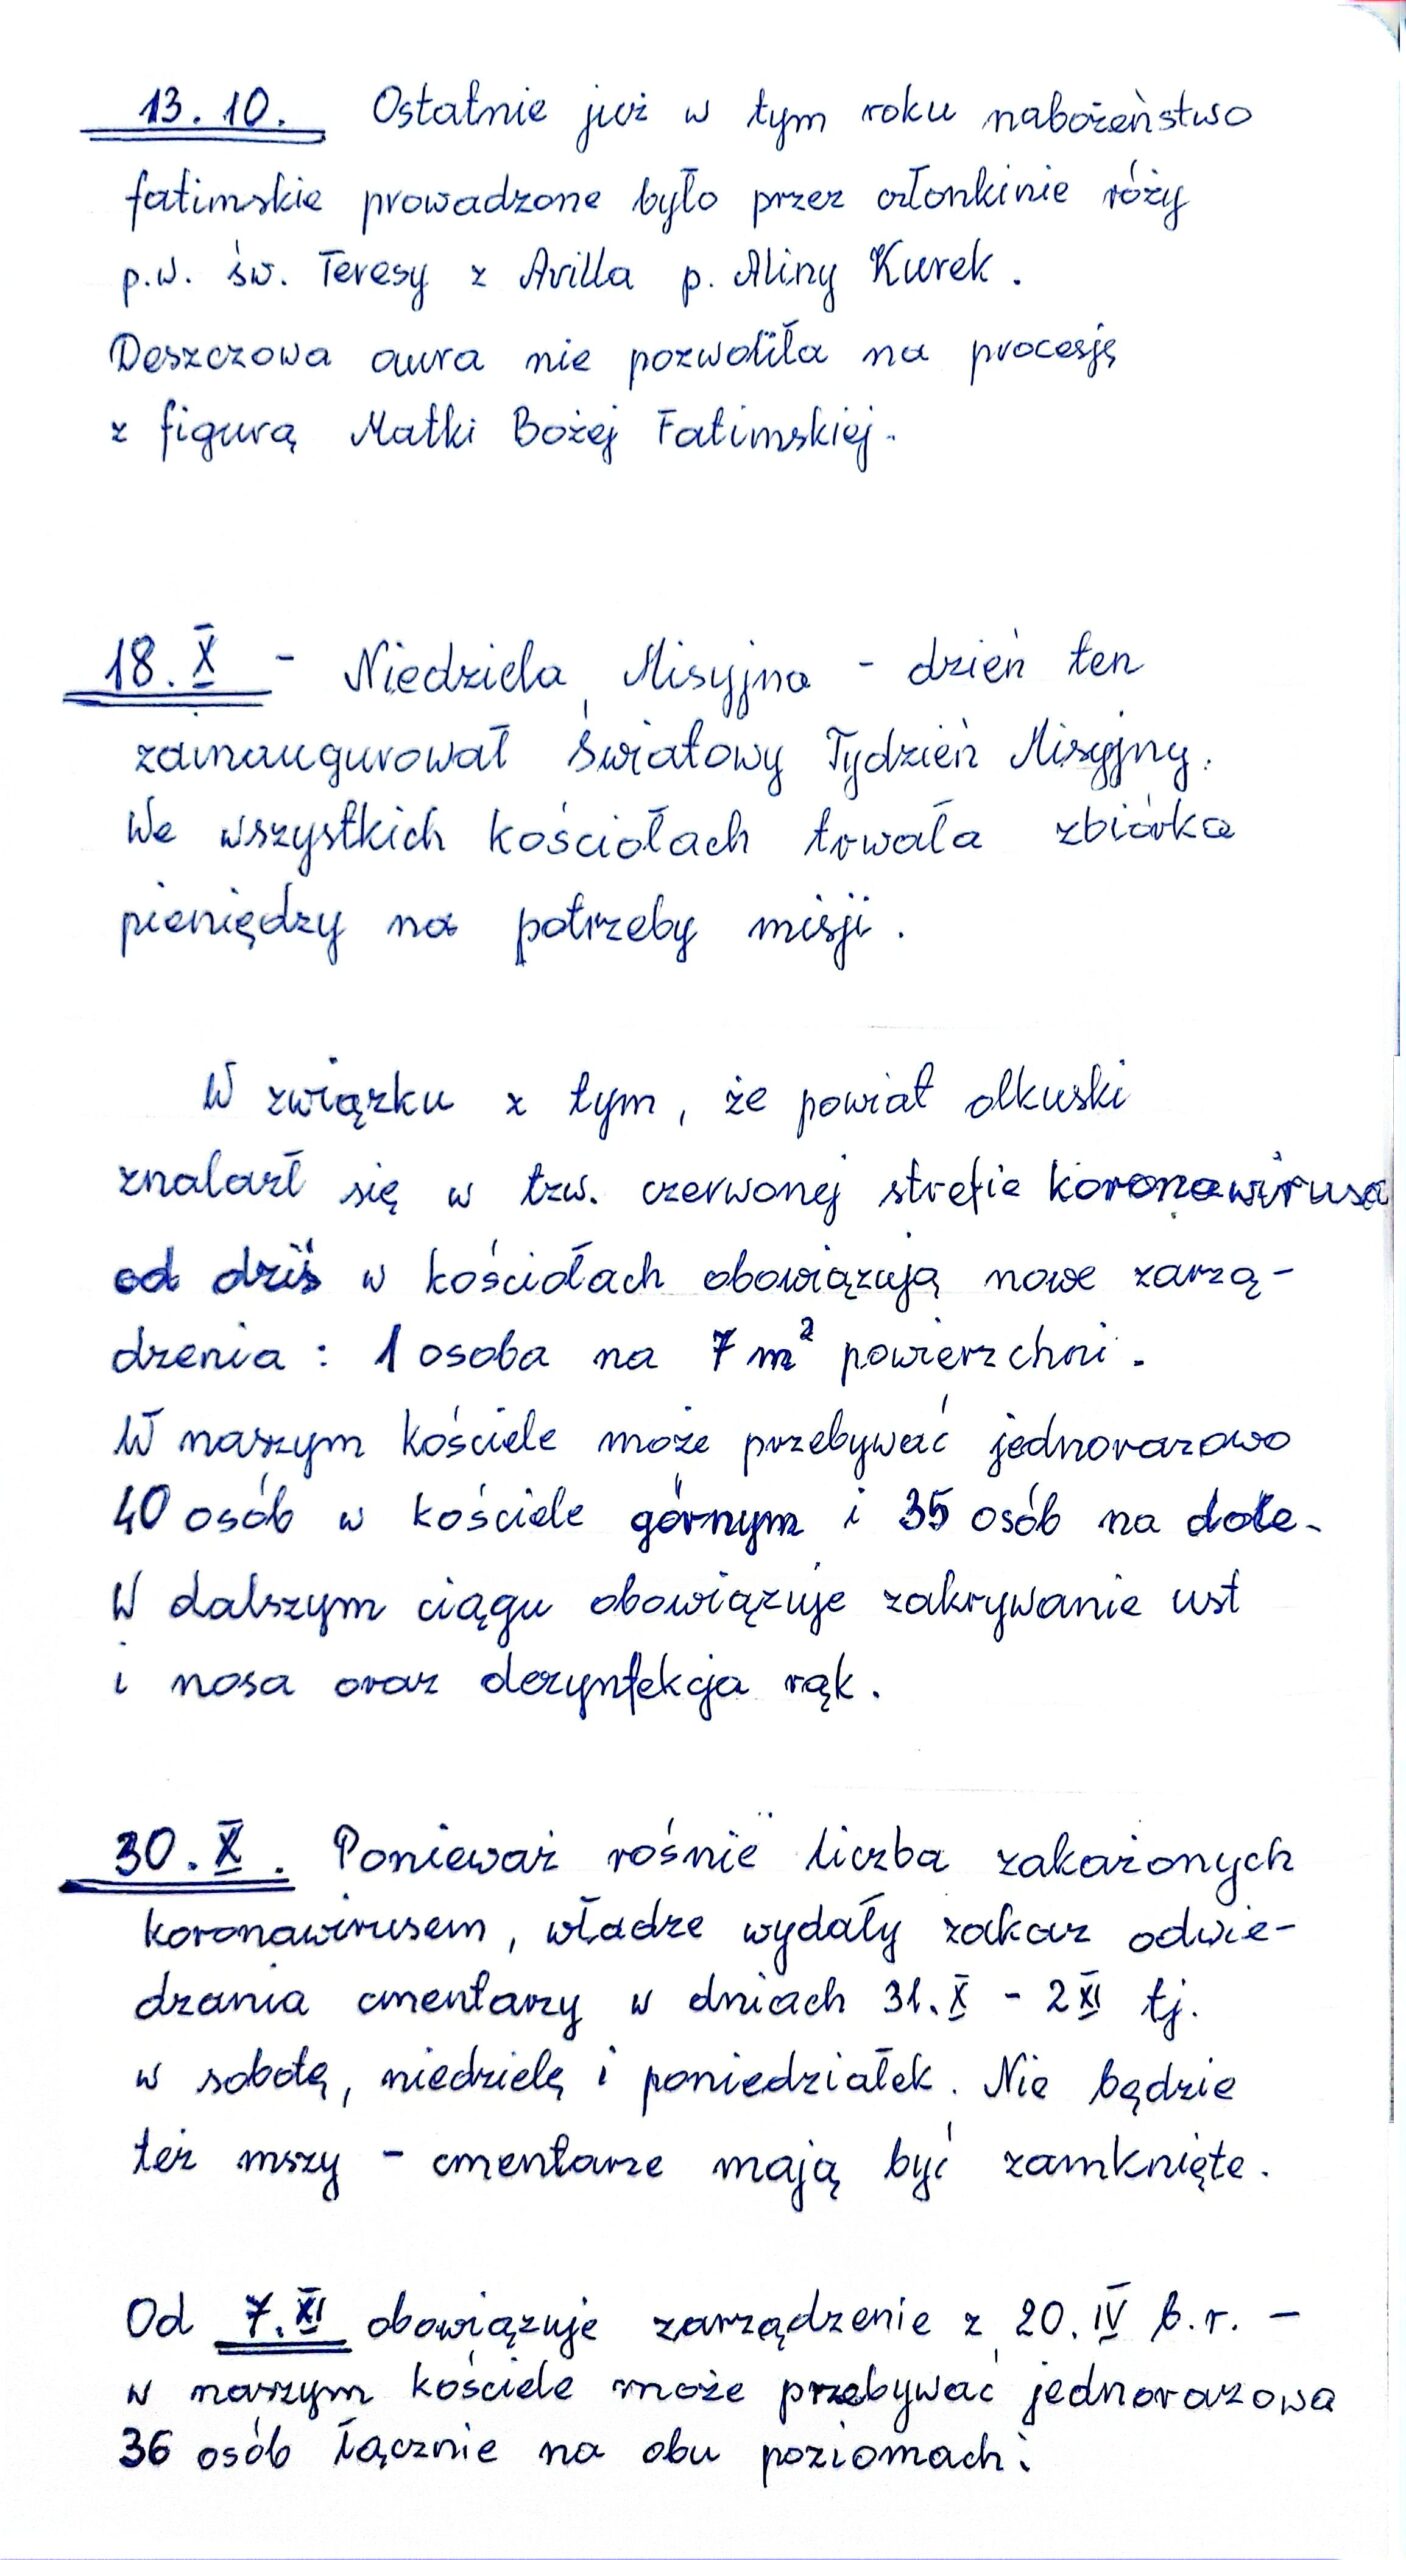 13.10. Ostatnie już w tym roku nabożeństwo
fatimskie prowadzone było przez członkinie róży
p.w. św. Teresy z Avilla p. Aliny Kurek.
Deszczowa aura nie pozwoliła na procesję
z figurą Matki Bożej Fatimskiej.
18.X - Niedziela Misyjna - dzień ten
zainaugurował Światowy Tydzień Misyjny.
We wszystkich kościołach trwała zbiórka
pieniędzy na potrzeby misji.
W związku z tym, że powiat olkuski
znalazł się w tzw. czerwonej strefie koronawirusa
od dziś w kościołach obowiązują nowe zarzą-
dzenia: 1 osoba na 7 m² powierzchni.
W naszym kościele może przebywać jednorazowo
40 osób w kościele górnym i 35 osób na dole.
W dalszym ciągu obowiązuje zakrywanie ust
i nosa oraz dezynfekcja rąk.
30.X. Ponieważ rośnie liczba zakażonych
koronawirusem, władze wydały zakaz odwie-
dzania cmentarzy w dniach 31.X - 2 XI tj.
w sobotę, niedzielę i poniedziałek. Nie będzie
też mszy - cmentarze mają być zamknięte.
Od 7.XI obowiązuje zarządzenie z 20.IV b.r. -
w naszym kościele może przebywać jednorazowa
36 osób łącznie na obu poziomach.